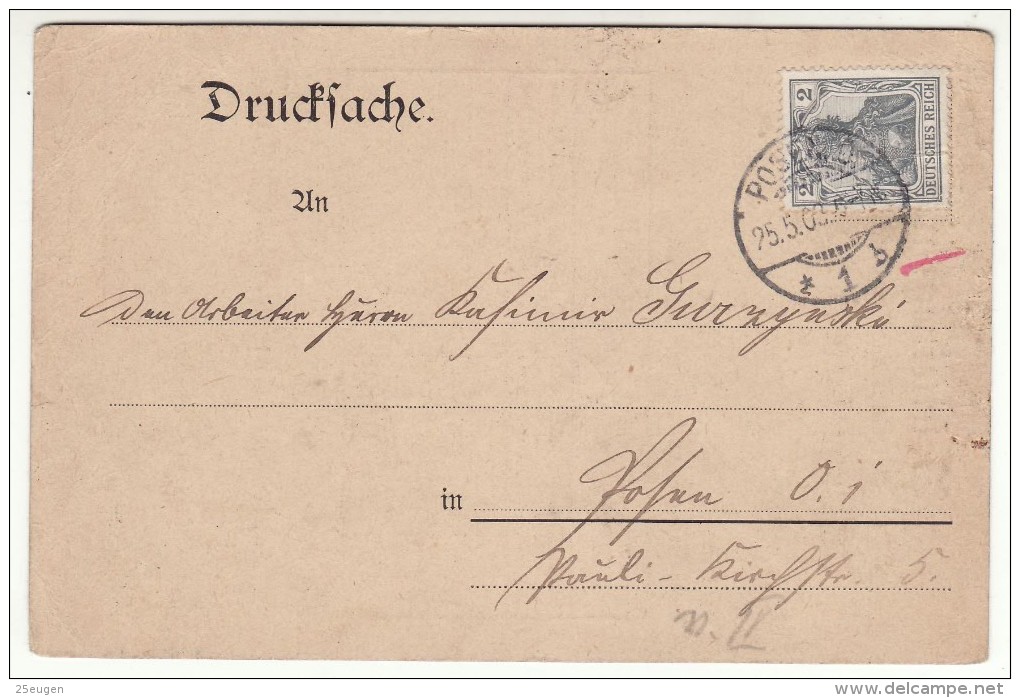 Drucksache.
2
2
DEUTSCHES REICH
POSEN O.
25.5.03.
* 1 b
An
Den Arbeiter Herrn Kasimir Gurzynski
in Posen O. 1
Pauli-Kirchstr. 5.
25eugen
www.delcampe.net